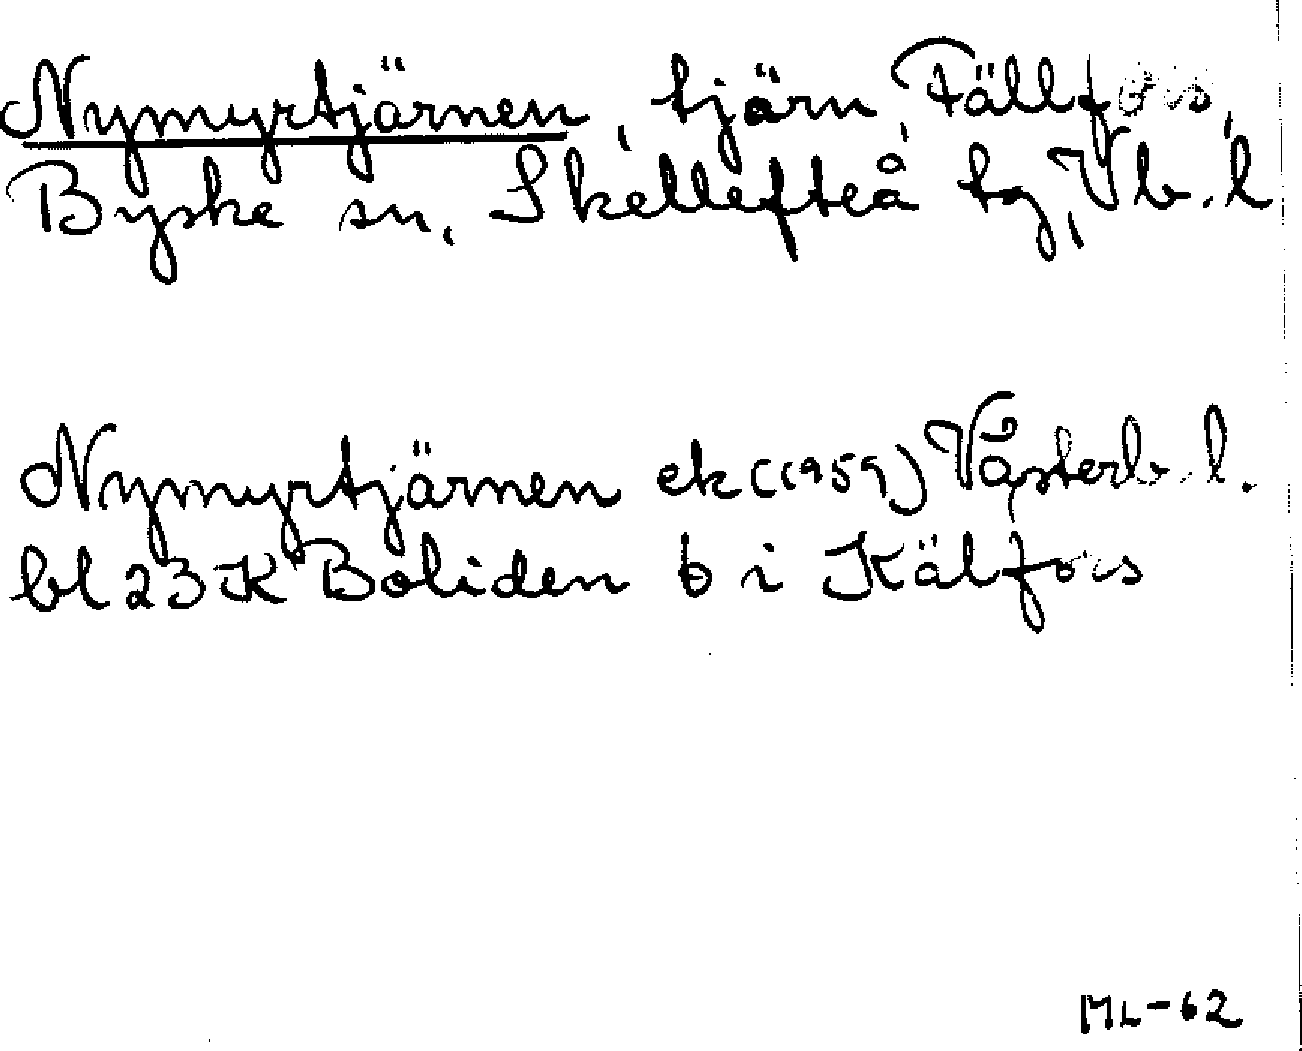 Nymyrtjärnen, tjärn, Fällfors,
Byske sn, Skellefteå tg, Vb. l
Nymyrtjärnen ek (1959) Västerb. l.
bl 23 K Boliden b i Kälfors
ML-62